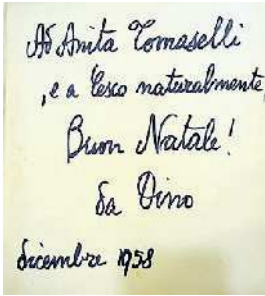 Ad Anita Tomaselli
, e a Cesco naturalmente,
Buon Natale!
da Dino
dicembre 1958